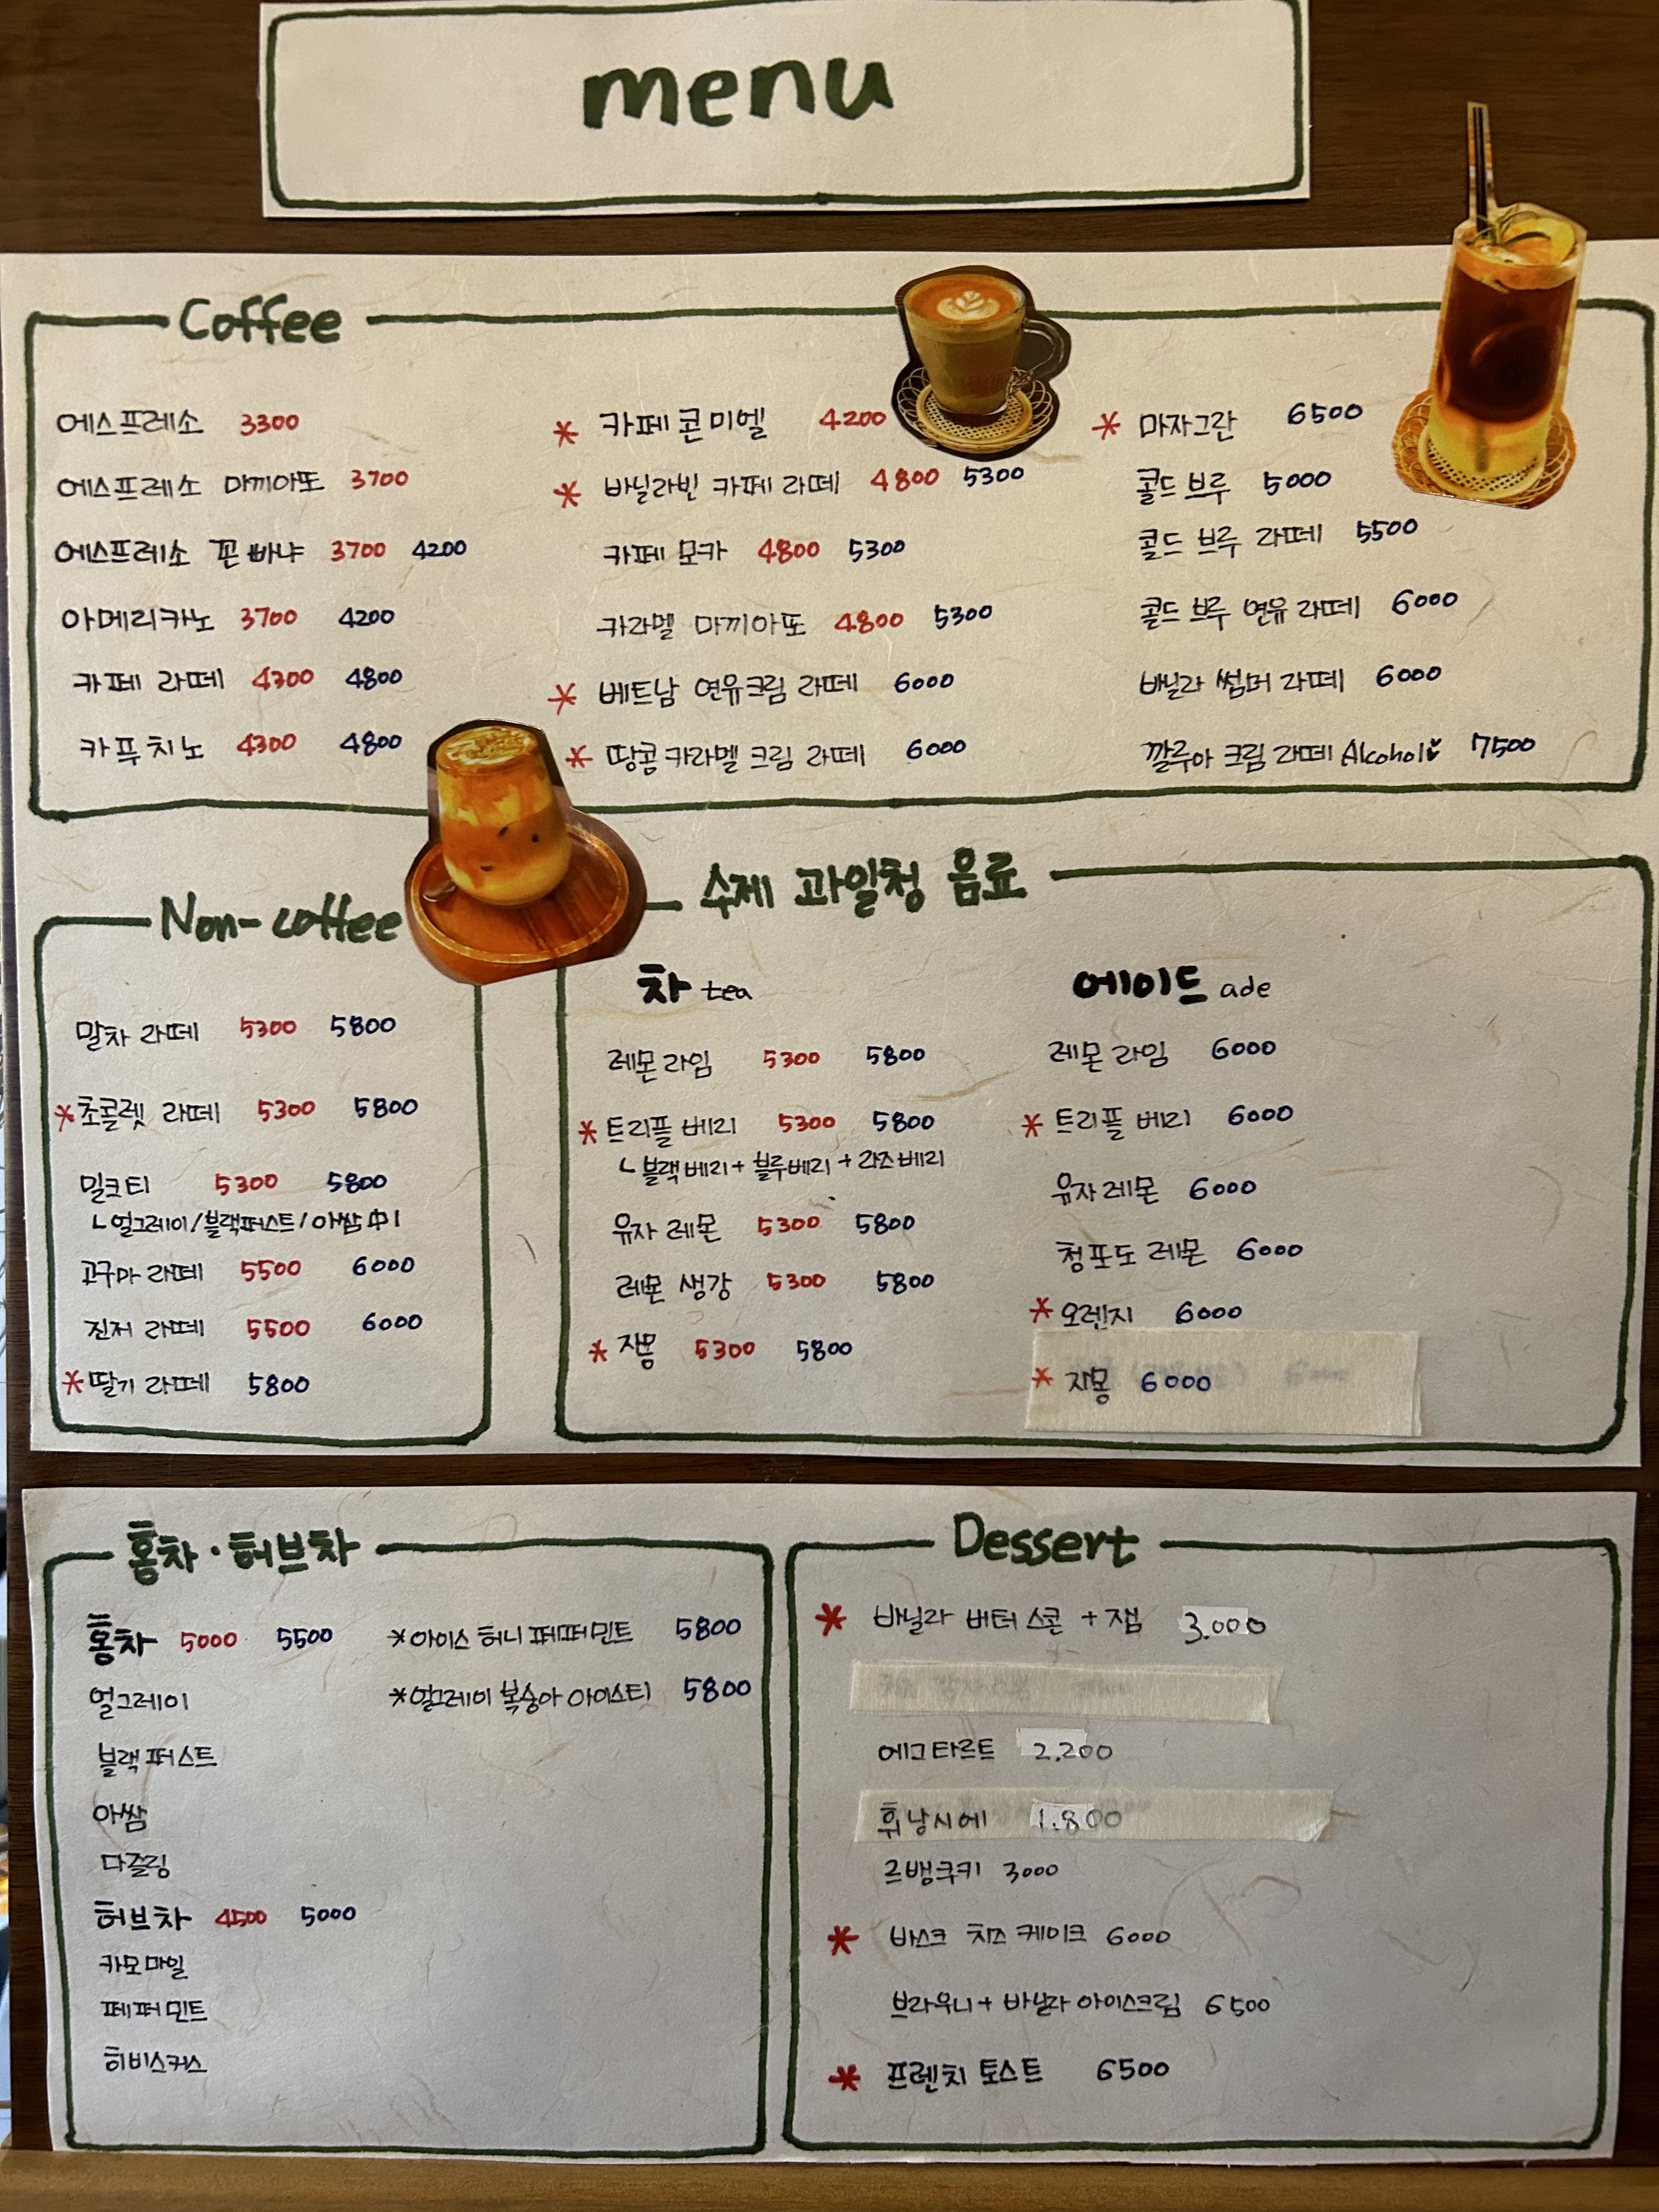 menu
Coffee
에스프레소 3300
에스프레소 마끼아또 3700
에스프레소 꼰빠냐 3700 4200
아메리카노 3700 4200
카페 라떼 4300 4800
카푸치노 4300 4800
* 카페 콘 미엘 4200
* 바닐라빈 카페 라떼 4800 5300
카페 모카 4800 5300
카라멜 마끼아또 4800 5300
* 베트남 연유크림 라떼 6000
* 땅콩 카라멜 크림 라떼 6000
* 마자그란 6500
콜드 브루 5000
콜드 브루 라떼 5500
콜드 브루 연유 라떼 6000
바닐라 썸머 라떼 6000
깔루아 크림 라떼 Alcohol 7500
Non-coffee
말차 라떼 5300 5800
*초콜렛 라떼 5300 5800
밀크티 5300 5800
ㄴ얼그레이/블랙퍼스트/아쌈 中1
고구마 라떼 5500 6000
진저 라떼 5500 6000
*딸기 라떼 5800
수제 과일청 음료
차 tea
레몬라임 5300 5800
*트리플 베리 5300 5800
ㄴ블랙베리+블루베리+라즈베리
유자 레몬 5300 5800
레몬 생강 5300 5800
* 자몽 5300 5800
에이드 ade
레몬라임 6000
* 트리플 베리 6000
유자 레몬 6000
청포도 레몬 6000
* 오렌지 6000
* 자몽 6000
홍차·허브차
홍차 5000 5500
얼그레이
블랙퍼스트
아쌈
다즐링
허브차 4500 5000
카모마일
페퍼민트
히비스커스
*아이스 허니 페퍼민트 5800
*얼그레이 복숭아 아이스티 5800
Dessert
* 바닐라 버터 스콘 + 잼 3.000
에그타르트 2.200
휘낭시에 1.800
르뱅쿠키 3000
* 바스크 치즈 케이크 6000
브라우니+ 바닐라 아이스크림 6500
* 프렌치 토스트 6500